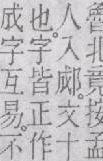 魯北竟按孟
人入郕。文十
也。字皆正作
成字互易。不